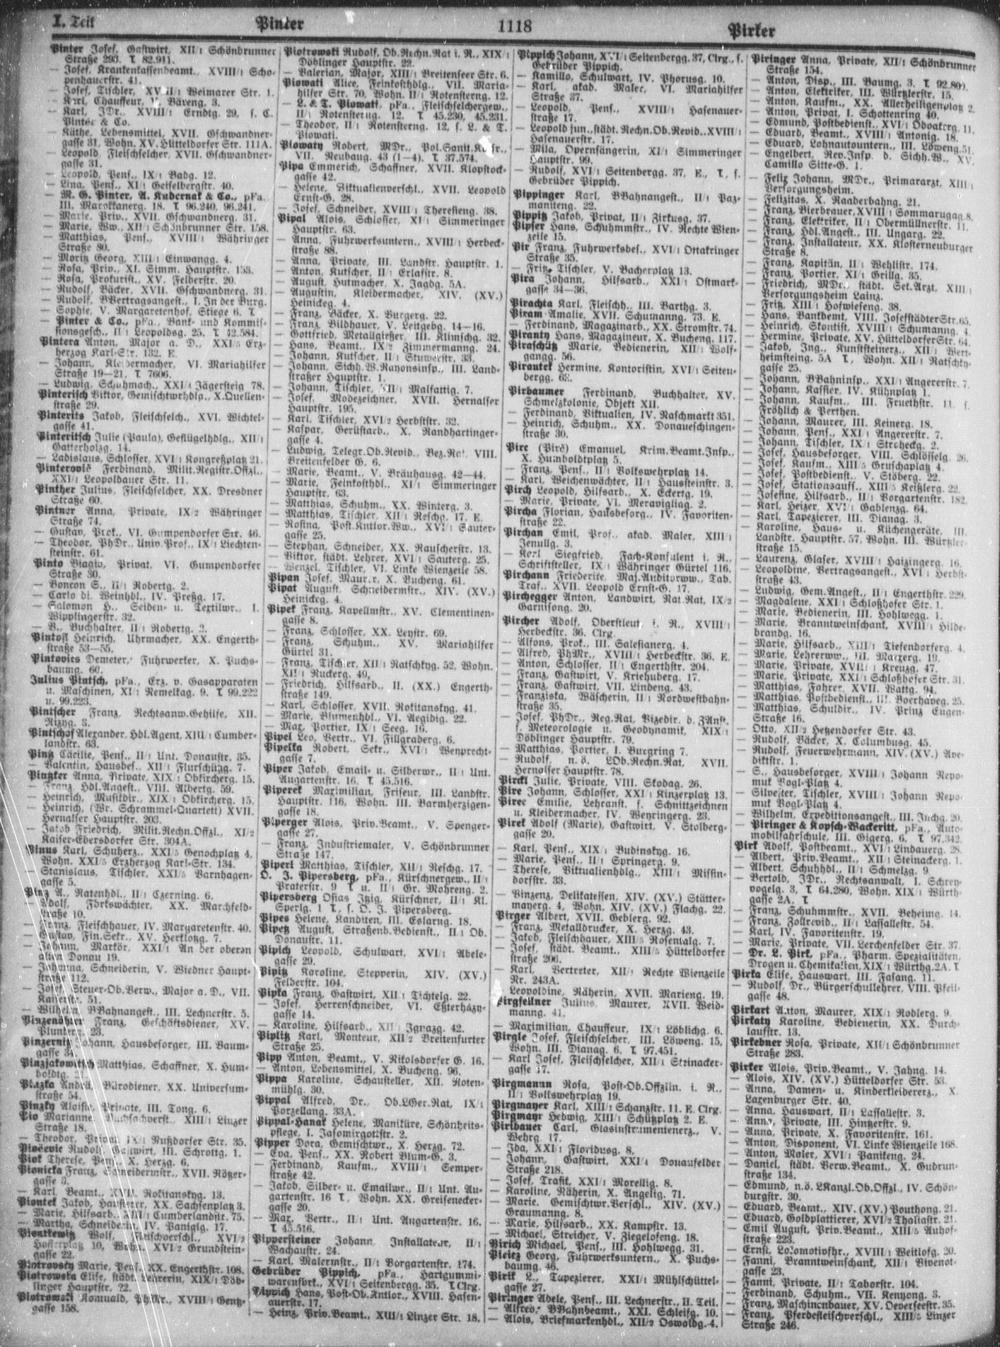 I. Teil
Pinter
1118
Pirker
Pinter Josef, Gastwirt, XII/1 Schönbrunner
Straße 293. T 82.911.
— Josef, Krankenkassenbeamt., XVIII/1 Scho-
penhauerstr. 41.
— Josef, Tischler, XVIII/1 Weimarer Str. 1.
— Karl, Chauffeur, Bäreng. 3.
— Karl, JDr., XVIII/1 Erndtg. 29, s. C.
Pinter & Co.
— Käthe, Lebensmittel, XVII. Gschwandner-
gasse 31, Wohn. XV. Hütteldorfer Str. 111A.
— Leopold, Fleischselcher, XVII. Gschwandner-
gasse 31.
— Leopold, Pens., IX/1 Badg. 12.
— Lina, Pens., XI/1 Geiselbergstr. 40.
— M. G. Pinter, A. Kubernat & Co., pFa.,
III. Marokkanerg. 18. T 96.240, 96.241.
— Marie, Priv., XVII. Gschwandnerg. 31.
— Marie, Ww., XII/1 Schönbrunner Str. 158.
— Matthias, Pens., XVIII/1 Währinger
Straße 98.
— Moritz Georg, XIII/1 Einwangg. 4.
— Rosa, Priv., XI. Simm. Hauptstr. 153.
— Rosa, Prokurist., XV. Felberstr. 20.
— Rudolf, Bäcker, XVII. Gschwandnerg. 31.
— Rudolf, BBertragsangest., I. In der Burg.
— Sophie, V. Margaretenhof, Stiege 6. T
— Pinter & Co., pFa., Bank- und Kommis-
sionsgesch., II/1 Leopoldsg. 25. T 12.584.
Pintera Anton, Major a. D., XXI/5 Erz-
herzog Karl-Str. 132. E.
— Johann, Kleidermacher, VI. Mariahilfer
Straße 19—21. T 7606.
— Ludwig, Schuhmach., XXI/1 Jägersteig 78.
Pinterisch Viktor, Gemischtwhdlg., X. Quellen-
straße 29.
Pinterits Jakob, Fleischselch., XVI. Wichtel-
gasse 41.
Pinteritsch Julie (Paula), Geflügelhdlg., XII/1
Gatterholzg. 14.
— Ladislaus, Schlosser, XVI. Kongreßplatz 21.
Pinterovič Ferdinand, Milit.Registr.Offzl.,
XXI/1 Leopoldauer Str. 11.
Pinther Julius, Fleischselcher, XX. Dresdner
Straße 60.
Pintner Anna, Private, IX/2 Währinger
Straße 74.
— Gustav, Prok., VI. Gumpendorfer Str. 46.
— Theodor, PhDr., Univ.Prof., IX/1 Liechten-
steinstr. 61.
Pinto Biagio, Privat, VI. Gumpendorfer
Straße 30.
— Boncon S., II/1 Robertg. 2.
— Carlo di, Weinhdl., IV. Preßg. 17.
— Salomon H., Seiden- u. Textilwr., I.
Wipplingerstr. 32.
— V., Buchhalter, II/1 Robertg. 2.
Pintösl Heinrich, Uhrmacher, XX. Engerth-
straße 53—55.
Pintovics Demeter, Fuhrwerker, X. Puchs-
baumg. 60.
Julius Pintsch, pFa., Erz. v. Gasapparaten
u. Maschinen, XI/1 Nemelkag. 9. T 99.222
u. 99.223.
Pintscher Franz, Rechtsanw.Gehilfe, XII.
Rizyg. 3.
Pintschof Alexander, Hdl.Agent, XIII/1 Cumber-
landstr. 63.
Pinß Cäcilie, Pens., II/1 Unt. Donaustr. 35.
— Valentin, Hausbes., XII/1 Flurschützg. 7.
Pinzker Anna, Private, XIX/1 Obkircherg. 15.
— Franz, Hdl.Angest., VIII. Albertg. 59.
— Heinrich, Musikdir., XIX/1 Obkircherg. 15.
— Heinrich, (Wr. Schrammel-Quartett) XVII.
Hernalser Hauptstr. 203.
— Jakob Friedrich, Milit.Rechn.Offzl., XI/2
Kaiser-Ebersdorfer Str. 304A.
Pinus Karl, Schuherz., XXI/5 Genochplatz 4,
Wohn. XXI/5 Erzherzog Karl-Str. 134.
— Stanislaus, Tischler, XXI/5 Varnhagen-
gasse 5.
Pinz A., Ratenhdl., II/1 Czerning. 6.
— Adolf, Fördswächter, XX. Marchfeld-
straße 10.
— Franz, Fleischhauer, IV. Margaretenstr. 40.
— Gustav, Fin.Sekr., XV. Herklotzg. 7.
— Johann, Markör., XXI/1 An der oberen
alten Donau 19.
— Johanna, Schneiderin, V. Wiedner Haupt-
straße 112.
— Josef, Steuer-Ob.Verw., Major a. D., VII.
Kaiserstr. 51.
— Wilhelm, BBahnangest., III. Lechnerstr. 5.
Pinzenöhler Franz, Geschäftsdiener, XV.
Plunkerg. 23.
Pinzernig Johann, Hausbesorger, III. Baum-
gasse
Pinzjakowitsch Matthias, Schaffner, X. Hum-
boldtg. 2.
Andrä, Bürodiener, XX. Universum-
straße 54.
Pinzky Aloisia, Private, III. Tong. 6.
Pio Marianne, XIII/1 Linzer
Straße 18.
— Theodor, Privat, IX/1 Nußdorfer Str. 35.
Pioševic Rudolf, III. Schrottg. 1.
Piok Therese, Pens., X. Herzg. 6.
Pionicka Franz, Schneidermstr., XVII. Rötzer-
gasse 3.
— Karl, Beamt., XVII. Rokitanskyg. 13.
Piontek Jakob, Hausierer, XX. Sachsenplatz 3.
— Marie, Hilfsarb., XIII/1 Cumberlandstr. 75.
— Martha, Schneiderin, IV. Paniglg. 17.
Piontkewitz Wolf, Fleischverschl., XVI/2
Hofferplatz 10, Wohn. XVI/2 Grundstein-
gasse 22.
Piotrovsky Marie, Pens., XX. Engerthstr. 108.
Piotrowska Elise, städt. Lehrerin, XIX/1 Döb-
linger Hauptstr. 22.
Piotrowski Romuald, PhMr., XVIII/1 Gentz-
gasse 158.
Piotrowski Rudolf, Ob.Rechn.Rat i. R., XIX/1
Döblinger Hauptstr. 22.
— Valerian, Major, XIII/1 Breitenseer Str. 6.
Piowati Alice, Feinkosthdlg., VII. Maria-
hilfer Str. 70, Wohn. II/1 Rotensterng. 12.
— L. & T. Piowati, pFa., Fleischselchergew.,
II/1 Rotensterng. 12. T 45.230, 45.231.
— Theodor, II/1 Rotensterng. 12, s. L. & T.
Piowati.
Piowaty Robert, MDr., Pol.Sanit.Kons.,
VII. Neubaug. 43 (1—4). T 37.574.
Pipa Emmerich, Schaffner, XVII. Klopstock-
gasse 42.
— Helene, Viktualienverschl., XVII. Leopold
Ernst-G. 28.
— Josef, Schneider, XVIII/1 Theresieng. 38.
Pipal Alois, Schlosser, XI/1 Simmeringer
Hauptstr. 63.
— Anna, Fuhrwerksuntern., XVIII/1 Herbeck-
straße 88.
— Anna, Private, III. Landstr. Hauptstr. 1.
— Anton, Kutscher, II/1 Erlafstr. 8.
— August, Hutmacher, X. Jagdg. 5A.
— Augustin, Kleidermacher, XIV. (XV.)
Heinickeg. 4.
— Franz, Bäcker, X. Burgerg. 22.
— Franz, Bildhauer, V. Leitgebg. 14—16.
— Gottfried, Metallgießer, III. Klimschg. 32.
— Hans, Beamt., IX/2 Zimmermanng. 24.
— Johann, Kutscher, II/1 Stuwerstr. 33.
— Johann, Sichh.W.Rayonsinsp., III. Land-
straßer Hauptstr. 1.
— Johann, Tischler, XII/1 Malfattig. 7.
— Josef, Modezeichner, XVII. Hernalser
Hauptstr. 195.
— Karl, Tischler, XVI/2 Herbststr. 32.
— Kaspar, Gerüstarb., X. Randhartinger-
gasse 4.
— Ludwig, Telegr.Ob.Revid., Bez.Rat, VIII.
Breitenfelder G. 6.
— Marie, Beamt., V. Bräuhausg. 42—44.
— Marie, Feinkosthdl., XI/1 Simmeringer
Hauptstr. 63.
— Matthias, Schuhm., XX. Winterg. 3.
— Matthias, Tischler, XII/1 Reschg. 17. E.
— Rosina, Post.Kntlor.Ww., XVI/1 Sauter-
gasse 25.
— Stephan, Schneider, XX. Rauscherstr. 13.
— Viktor, städt. Lehrer, XVI/1 Sauterg. 25.
— Wenzel, Tischler, VI. Linke Wienzeile 58.
Pipan Josef, Maur., X. Bucheng. 61.
Pipat August, Schneidermstr., XIV. (XV.)
Heinickeg. 4.
Pipek Franz, Kapellmstr., XV. Clementinen-
gasse 8.
— Franz, Schlosser, XX. Leystr. 69.
— Franz, Schuhm., XV. Mariahilfer
Gürtel 31.
— Franz, Tischler, XII/1 Ratschkyg. 52, Wohn.
XII/1 Ruckerg. 49.
— Friedrich, Hilfsarb., II. (XX.) Engerth-
straße 149.
— Karl, Schlosser, XVII. Rokitanskyg. 41.
— Marie, Blumenhdl., VI. Aegidig. 22.
— Max, Portier, IX/1 Seeg. 16.
Pipel Leo, Vertr., VI. Gfrornerg. 6.
Pipelka Robert, Sekr., XVI/1 Wenprecht-
gasse 7.
Piper Jakob, Email- u. Silberwr., II/1 Unt.
Augartenstr. 16. T 43.516.
Piperek Maximilian, Friseur, III. Landstr.
Hauptstr. 116, Wohn. III. Barmherzigen-
gasse 18.
Piperger Alois, Priv.Beamt., V. Spenger-
gasse 27.
— Franz, Industriemaler, V. Schönbrunner
Straße 147.
Piperl Matthias, Tischler, XII/1 Reschg. 17.
O. J. Pipersberg, pFa., Kürschnergew., II/1
Praterstr. 9 T u. II/1 Gr. Mohreng. 2.
Pipersberg Osias Itzig, Kürschner, II/1 Kl.
Sperlg. 1 T, s. O. J. Pipersberg.
Pipes Helene, Kanditen, III. Eslarng. 18.
Pipetz August, Straßenb.Bedienst., II/1 Ob.
Donaustr. 11.
Pipich Leopold, Schulwart, XVI/1 Abele-
gasse 29.
Pipitz Karoline, Stepperin, XIV. (XV.)
Felderstr. 104.
Pipka Franz, Gastwirt, XII/1 Tichtelg. 22.
— Josef, Herrenschneider, VI. Eßterházy-
gasse 14.
— Karoline, Hilfsarb., XII/1 Ignazg. 42.
Piplitz Karl, Monteur, XII/2 Breitenfurter
Straße 25.
Pipp Anton, Beamt., V. Nikolsdorfer G. 16.
— Anton, Lebensmittel, X. Bucheng. 96.
Pippa Karoline, Schausteller, XII. Roten-
mühlg. 30.
Pippal Alfred, Dr., Ob.LGer.Rat, IX/1
Porzellang. 33A.
Pippal-Hanak Helene, Maniküre, Schönheits-
pflege, I. Jasomirgottstr. 2.
Pipper Dora, Gemischtwr., X. Herzg. 72.
— Eva, Pens., XX. Robert Blum-G. 3.
— Ferdinand, Kaufm., XVIII/1 Semper-
straße 42.
— Jakob, Silber- u. Emailwr., II/1 Unt. Au-
gartenstr. 16 T, Wohn. XX. Greisenecker-
gasse 20.
— Max, Vertr., II/1 Unt. Augartenstr. 16.
T 43.516.
Pippersteiner Johann, Installateur, II/1
Wachaustr. 24.
— Karl, Malermstr., II/1 Vorgartenstr. 174.
Gebrüder Pippich, pFa., Hartgummi-
warenfbrk., XVI/1 Seitenbergg. 35. T. Clrg.
Pippich Hans, Post-Ob.Kntlor., XVIII. Hasen-
auerstr. 17.
— Heinz, Priv.Beamt., XIII/1 Linzer Str. 18.
Pippich Johann, XVI/1 Seitenbergg. 37, Clrg., s.
Gebrüder Pippich.
— Kamillo, Schulwart, IV. Phorusg. 10.
— Karl, akad. Maler, VI. Mariahilfer
Straße 37.
— Leopold, Pens., XVIII/1 Hasenauer-
straße 17.
— Leopold jun., städt. Rechn.Ob.Revid., XVIII/1
Hasenauerstr. 17.
— Mila, Opernsängerin, XI/1 Simmeringer
Hauptstr. 99.
— Rudolf, XVI/1 Seitenbergg. 37, E., T, s.
Gebrüder Pippich.
Pippinger Karl, BBahnangest., II/1 Paz-
maniteng. 22.
Pippitz Jakob, Privat, II/1 Zirkusg. 37.
Pipser Hans, Schuhmmstr., IV. Rechte Wien-
zeile 15.
Pir Franz, Fuhrwerksbes., XVI/1 Ottakringer
Straße 35.
— Fritz, Tischler, V. Bacherplatz 13.
Pira Johann, Hilfsarb., XXI/1 Ostmark-
gasse 34—36.
Pirachta Karl, Fleischh., III. Barthg. 3.
Piram Amalie, XVII. Schumanng. 73. E.
— Ferdinand, Magazinarb., XX. Stromstr. 74.
Piranty Hans, Magazineur, X. Bucheng. 117.
Piraschütz Marie, Bedienerin, XII/1 Wolf-
gangg. 56.
Pirautek Hermine, Kontoristin, XVI/1 Seiten-
bergg. 62.
Pirbaumer Ferdinand, Buchhalter, XV.
Schmelzkolonie, Objekt XII.
— Ferdinand, Viktualien, IV. Naschmarkt 351.
— Heinrich, Schuhm., XX. Donaueschingen-
straße 30.
Pirc (Piré) Emanuel, Krim.Beamt.Insp.,
X. Humboldtplatz 5.
— Franz, Pens., II/1 Volkswehrplatz 14.
— Karl, Weichenwächter, II/1 Haussteinstr. 3.
Pirch Leopold, Hilfsarb., X. Eckertg. 19.
— Marie, Private, VI. Meravigliag. 2.
Pircha Florian, Hausbesorg., IV. Favoriten-
straße 22.
Pirchan Emil, Prof., akad. Maler, XIII/1
Jenullg. 3.
— Karl Siegfried, Fach-Konsulent i. R.,
Schriftsteller, IX/1 Währinger Gürtel 116.
Pirchann Friederike, Maj.Auditorww., Tab.
Traf., XVII. Leopold Ernst-G. 17.
Pirchegger Anton, Landwirt, Nat.Rat, IX/2
Garnisong. 20.
Pircher Adolf, Oberstleut. i. R., XVIII/1
Herbeckstr. 36. Clrg.
— Alfons, Prok., III. Salesianerg. 4.
— Alfred, PhMr., XVIII/1 Herbeckstr. 36. E.
— Anton, Schlosser, II/1 Engerthstr. 204.
— Franz, Gastwirt, V. Kriehuberg. 17.
— Franz, Gastwirt, VII. Lindeng. 43.
— Franziska, Wäscherin, II/1 Nordwestbahn-
straße 35.
— Josef, PhDr., Reg.Rat, Vizedir. d. ZAnst.
f. Meteorologie u. Geodynamik, XIX/1
Döblinger Hauptstr. 79.
— Matthias, Portier, I. Burgring 7.
— Rudolf, n. ö. LOb.Rechn.Rat, XVII.
Hernalser Hauptstr. 78.
Pircl Julie, Private, VIII. Skodag. 26.
Pire Johann, Schlosser, XXI/1 Pinzerplatz 13.
Pirec Emilie, Lehranst. f. Schnittzeichnen
u. Kleidermacher, IV. Weyringerg. 23.
Pirek Adolf (Marie), Gastwirt, V. Stolberg-
gasse 20.
— Karl, Pens., XIX/1 Budinskyg. 16.
— Marie, Pens., II/1 Springerg. 9.
— Therese, Viktualienhdlg., XIII/1 Missin-
dorfstr. 33.
— Vinzenz, Delikatessen, XIV. (XV.) Stätter-
mayerg. 4, Wohn. XIV. (XV.) Flachg. 22.
Pirger Albert, XVII. Geblerg. 92.
— Franz, Metalldrucker, X. Herzg. 43.
— Jakob, Fleischhauer, XIII/5 Rosentalg. 7.
— Josef, städt. Beamt., XIII/5 Hütteldorfer
Straße 206.
— Karl, Vertreter, XII/1 Rechte Wienzeile
Nr. 243A.
— Leopoldine, Näherin, XVII. Marieng. 19.
Pirgfellner Julius, Maurer, XVII. Weid-
manng. 41.
— Maximilian, Chauffeur, IX/1 Löblichg. 6.
Pirgle Josef, Fleischselcher, III. Löweng. 15,
Wohn. III. Dianag. 6. T 97.451.
— Karl Josef, Fleischselcher, XII/1 Strinacker-
gasse 17.
Pirgmann Rosa, Post-Ob.Offzlin. i. R.,
II/1 Volkswehrplatz 19.
Pirgmayer Karl, XIII/1 Schanzstr. 11. E. Clrg.
Pirgmayr Hedwig, XIII/1 Schützplatz 2. E.
Pirlbauer Carl, Glasinstrumentenerz., V.
Wehrg. 17.
— Ida, XXI/1 Floridusg. 8.
— Johann, Gastwirt, XXI/1 Donaufelder
Straße 218.
— Josef, Trafik, XXI/1 Morellig. 8.
— Karoline, Näherin, X. Angelig. 71.
— Marie, Gemischtwr.Verschl., XIV. (XV.)
Graumanng. 8.
— Marie, Hilfsarb., XX. Kampstr. 13.
— Michael, Streicher, V. Ziegelofeng. 18.
Pirich Michael, Pens., III. Hohlwegg. 31.
Pietz Georg, Fuhrwerksuntern., X. Puchs-
baumg. 46.
Pirik L., Tapezierer, XXI/1 Mühlschüttel-
gasse 27.
Piringer Adele, Pens., III. Lechnerstr., II. Teil.
— Alfred, BBahnbeamt., XXI. Schleifg. 10.
— Alois, Briefmarkenhdl., XII/2 Oswaldg. 4.
Piringer Anna, Private, XII/1 Schönbrunner
Straße 154.
— Anton, Disp., III. Baumg. 3. T 92.800.
— Anton, Elektriker, III. Würtzlerstr. 15.
— Anton, Kaufm., XX. Allerheiligenplatz 2.
— Anton, Privat, I. Schottenring 40.
— Edmund, Postbedienst., XVI/1 Odoakerg. 11.
— Eduard, Beamt., XVIII/1 Antonig. 18.
— Eduard, Lohnautountern., III. Löweng. 51.
— Engelbert, Rev.Insp. d. Sichh.W., XV.
Camillo Sitte-G. 1.
— Felix Johann, MDr., Primararzt, XIII/1
Versorgungsheim.
— Felizitas, X. Raaderbahng. 21.
— Franz, Bierbrauer, XVIII/1 Sommaruga­g. 8.
— Franz, Elektriker, II/1 Obermüllnerstr. 11.
— Franz, Hdl.Angest., III. Ungarg. 22.
— Franz, Installateur, XX. Klosterneuburger
Straße 8.
— Franz, Kapitän, II/1 Wehlistr. 174.
— Franz, Portier, XI/1 Grillg. 35.
— Friedrich, MDr., städt. Sek.Arzt, XIII/1
Versorgungsheim Lainz.
— Fritz, XIII/1 Hofwieserg. 38.
— Hans, Bankbeamt., VIII. Josefstädter Str. 65.
— Heinrich, Skontist, XVIII/1 Schumanng. 4.
— Hermine, Private, XV. Hütteldorfer Str. 64.
— Jakob, Ing., Kunststeinerz., XII/1 Wert-
heimsteing. 5A T, Wohn. XII/1 Ratschky-
gasse 25.
— Johann, BBahninsp., XXI/1 Angererstr. 7.
— Johann, Kassier, IV. Kühnplatz 1.
— Johann, Kaufm., III. Fruethstr. 11, s.
Fröhlich & Perthen.
— Johann, Maurer, III. Keinerg. 18.
— Johann, Pens., XXI/1 Angererstr. 7.
— Johann, Tischler, IX/1 Stroheckg. 2.
— Josef, Hausbesorger, VIII. Schlösselg. 26.
— Josef, Kaufm., XIII/5 Gruschaplatz 4.
— Josef, Postbedienst., V. Stöberg. 22.
— Josef, Stationsauff., XIII/5 Keißlerg. 22.
— Josefine, Hilfsarb., II/1 Vorgartenstr. 182.
— Karl, Heizer, XVI/1 Gablenzg. 64.
— Karl, Tapezierer, III. Dianag. 3.
— Karoline, Haus- u. Küchengeräte, III.
Landstr. Hauptstr. 57, Wohn. III. Würtzler-
straße 15.
— Laurenz, Glaser, XVIII/1 Haizingerg. 16.
— Leopoldine, Vertragsangest., XVI/1 Herbst-
straße 43.
— Ludwig, Gem.Angest., II/1 Engerthstr. 229.
— Magdalene, XXI/1 Schloßhofer Str. 1.
— Marie, Bedienerin, III. Hohlwegg. 1.
— Marie, Branntweinschank, XVIII/1 Hilde-
brandg. 16.
— Marie, Hilfsarb., XIII/1 Tiefendorferg. 4.
— Marie, Lehrerww., III. Marxerg. 19.
— Marie, Private, XVI/1 Kreuzg. 47.
— Marie, Private, XXI/1 Schloßhofer Str. 31.
— Matthias, Fahrer, XVII. Wattg. 94.
— Matthias, Postbedienst., III. Boerhaveg. 25.
— Matthias, Schuldir., IV. Prinz Eugen-
Straße 16.
— Otto, XII/2 Hetzendorfer Str. 43.
— Rudolf, Bäcker, X. Columbusg. 45.
— Rudolf, Feuerwehrmann, XIV. (XV.) Ave-
dikstr. 1.
— S., Hausbesorger, XVIII/1 Johann Nepo-
muk Vogl-Platz 4.
— Silvester, Tischler, XVIII/1 Johann Nepo-
muk Vogl-Platz 4.
— Wilhelm, Expeditionsangest., III. Juchg. 20.
— Piringer & Kapsch-Wackeritt, pFa., Auto-
mobilfahrschule, III. Gigerg. 6. T 97.342.
Pirk Adolf, Postbeamt., XVI/1 Lindauerg. 28.
— Albert, Priv.Beamt., XII/1 Steinackerg. 1.
— Albert, Schuhhdl., II/1 Schmelzg. 9.
— Bertold, JDr., Rechtsanwalt, I. Schrey-
vogelg. 3, T 64.280, Wohn. XIX/1 Würth-
gasse 2A. T
— Franz, Schuhmmstr., XVII. Beheimg. 14.
— Franz, Zollrevid., II/1 Lassallestr. 54.
— Karl, IV. Favoritenstr. 19.
— Marie, Private, VII. Lerchenfelder Str. 37.
— Dr. L. Pirk, pFa., Pharm. Spezialitäten,
Drogen u. Chemikalien, XIX/1 Würthg. 2A. T
Pirka Elise, Hauswart, III. Fasang. 11.
— Rudolf, Dr., Bürgerschullehrer, VIII. Pfeil-
gasse 48.
Pirkart Anton, Maurer, XIX/1 Rodlerg. 9.
Pirkaty Karoline, Bedienerin, XX. Durch-
laufstr. 13.
Pirkebner Rosa, Private, XII/1 Schönbrunner
Straße 283.
Pirker Alois, Priv.Beamt., V. Jahng. 14.
— Alois, XIV. (XV.) Hütteldorfer Str. 53.
— Anna, Damen- u. Kinderkleidererz., X.
Laxenburger Str. 40.
— Anna, Hauswart, II/1 Lassallestr. 3.
— Anna, Private, III. Hintzerstr. 9.
— Anna, Private, X. Favoritenstr. 161.
— Anton, Disponent, VI. Linke Wienzeile 168.
— Anton, Maler, XVI/1 Panikeng. 24.
— Daniel, städt. Verw.Beamt., X. Gudrun-
straße 134.
— Edmund, n.ö. LKanzl.Ob.Offzl., IV. Schön-
burgstr. 30.
— Eduard, Beamt., XIV. (XV.) Pouthong. 21.
— Eduard, Goldplattierer, XVI/2 Thaliastr. 21.
— Emil August, Priv.Beamt., XIII/5 Auhof-
straße 223.
— Ernst, Lokomotivfhr., XVIII/1 Weitlofg. 20.
— Fanni, Branntweinschank, XII/1 Bivenot-
gasse 23.
— Fanni, Private, II/1 Taborstr. 104.
— Ferdinand, Schuhm., VII. Kenyong. 3.
— Franz, Maschinenbauer, XV. Oeverseestr. 35.
— Franz, Pferdefleischverschl., XIII/5 Linzer
Straße 246.